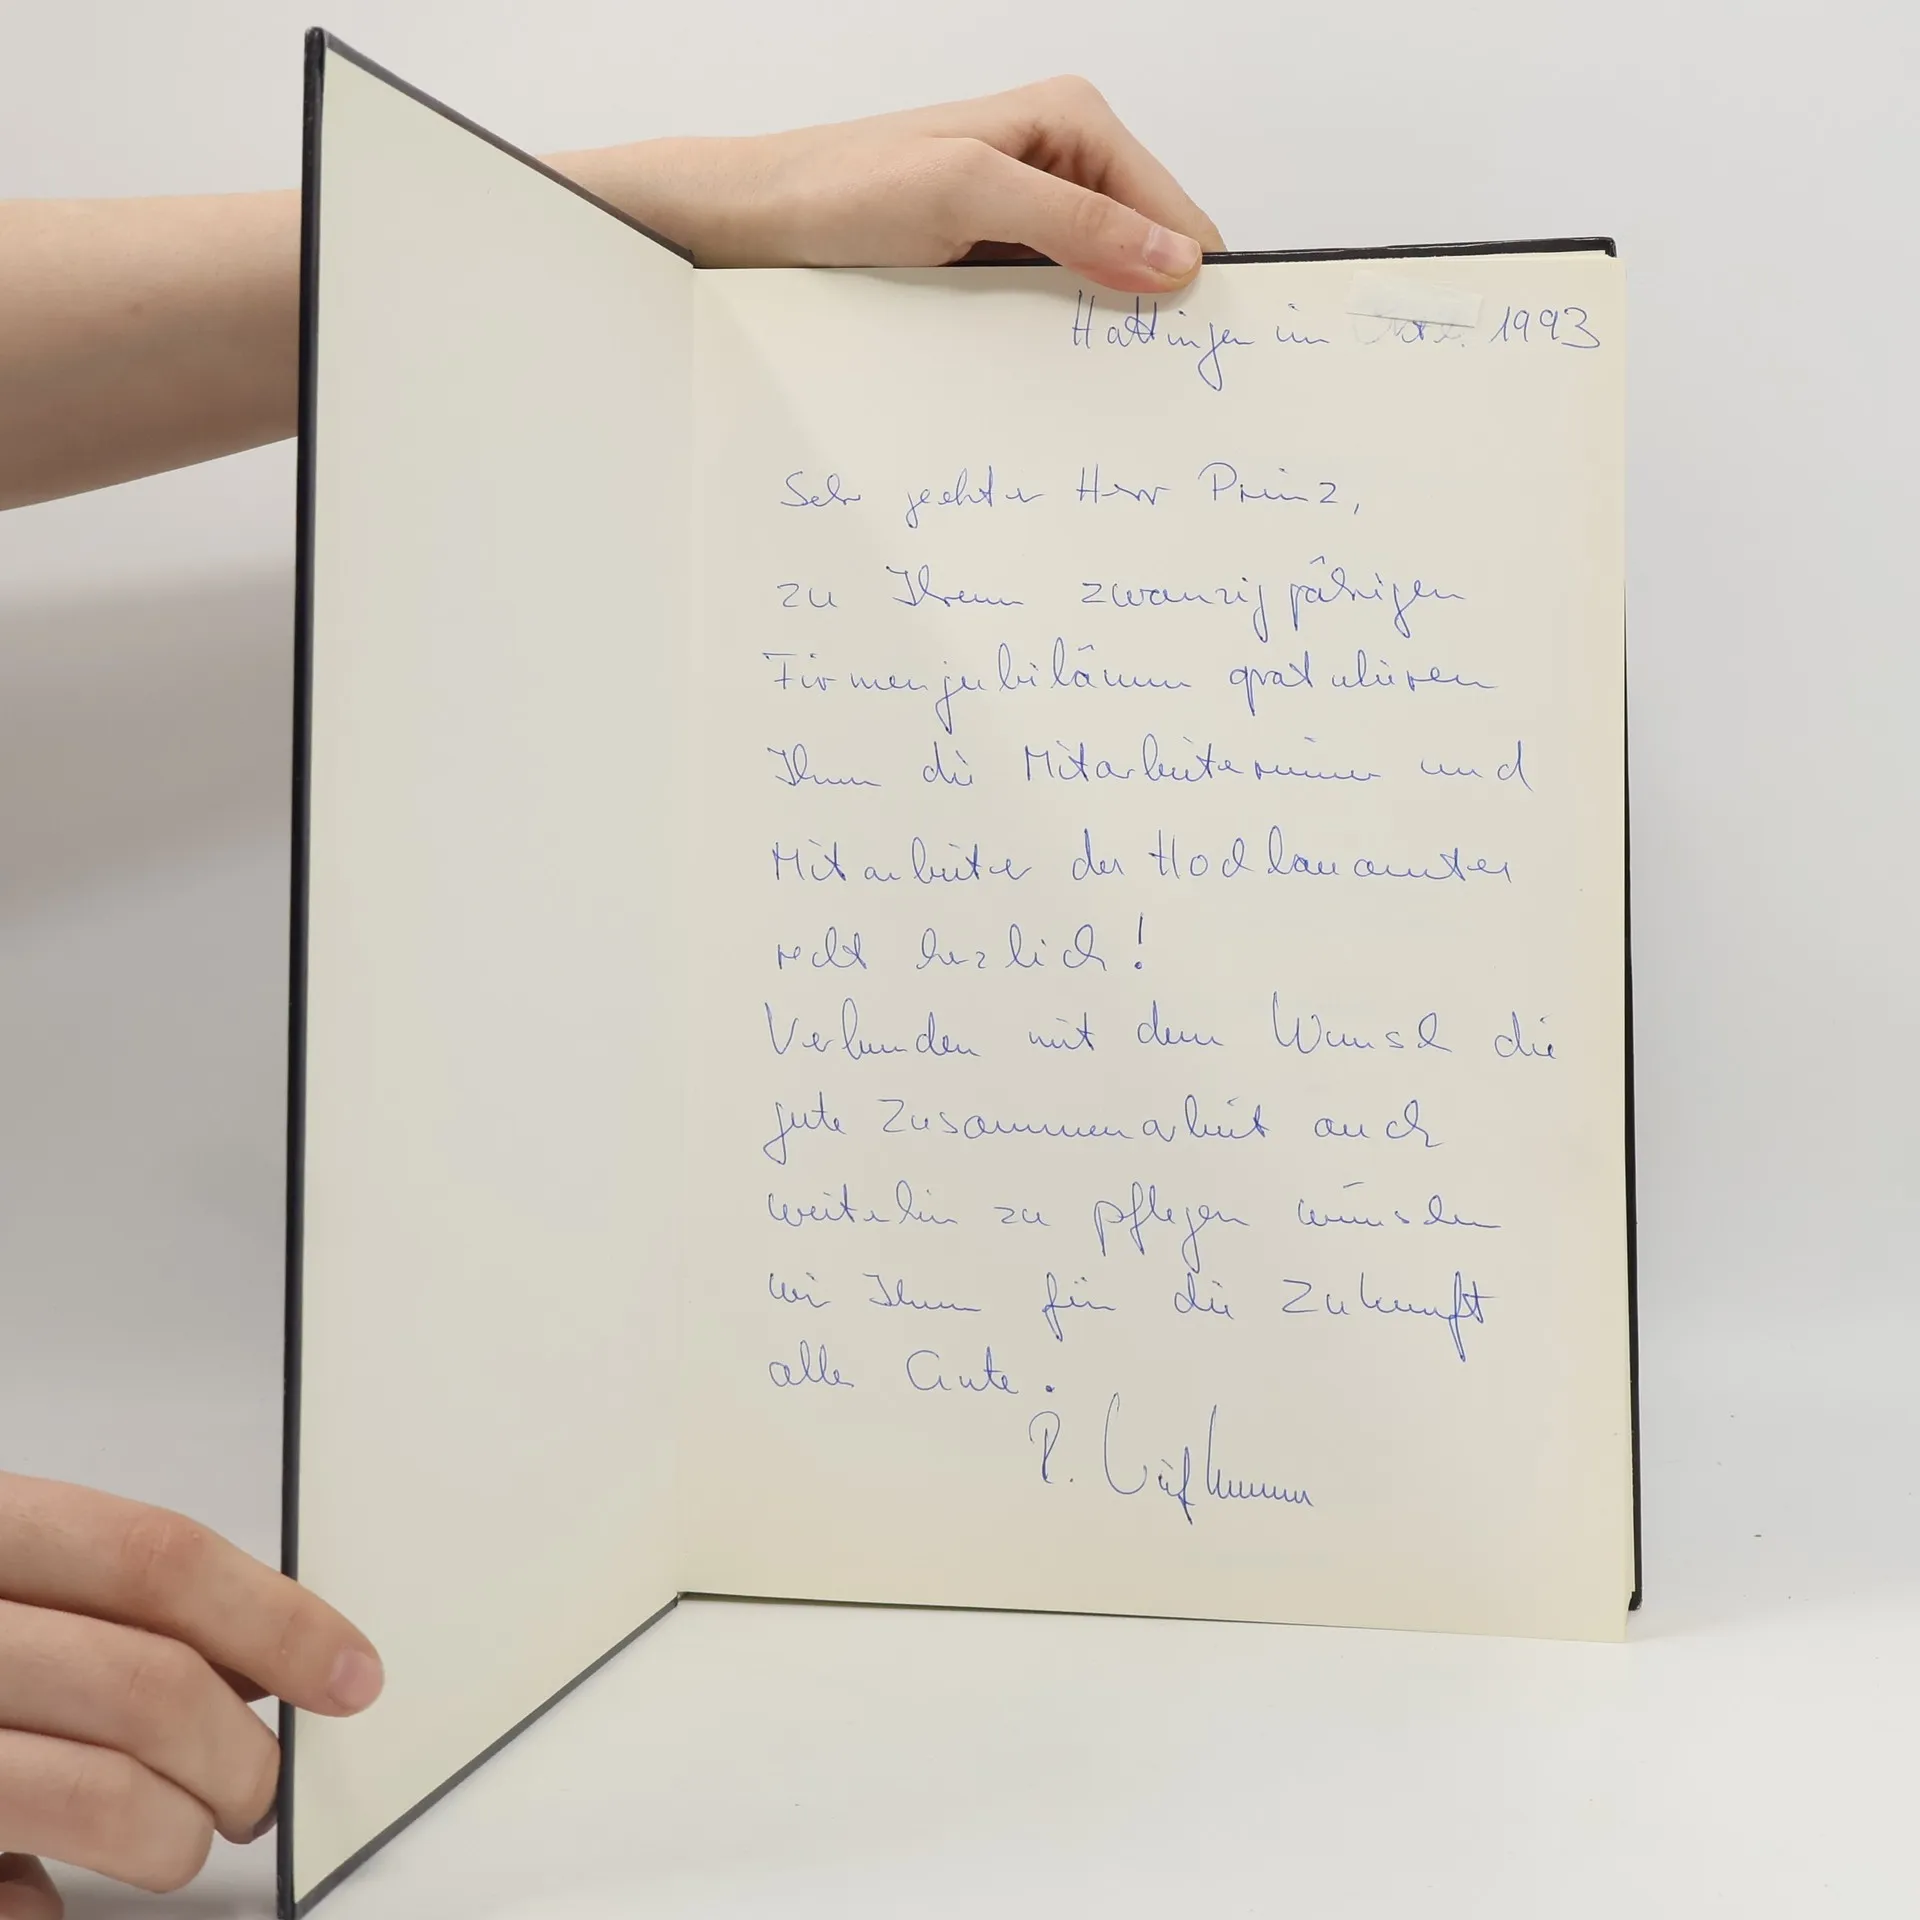 Hattingen im Okt. 1993
Sehr geehrter Herr Prinz,
zu Ihrem zwanzigjährigen
Firmenjubiläum gratulieren
Ihnen die Mitarbeiterinnen und
Mitarbeiter des Hochbauamtes
recht herzlich!
Verbunden mit dem Wunsch die
gute Zusammenarbeit auch
weiterhin zu pflegen wünschen
wir Ihnen für die Zukunft
alles Gute.
P.